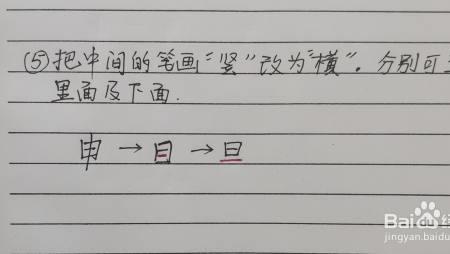 ⑤把中间的笔画"竖"改为"横"。分别可
里面及下面.
申→目→旦
Baidu
jingyan.baidu